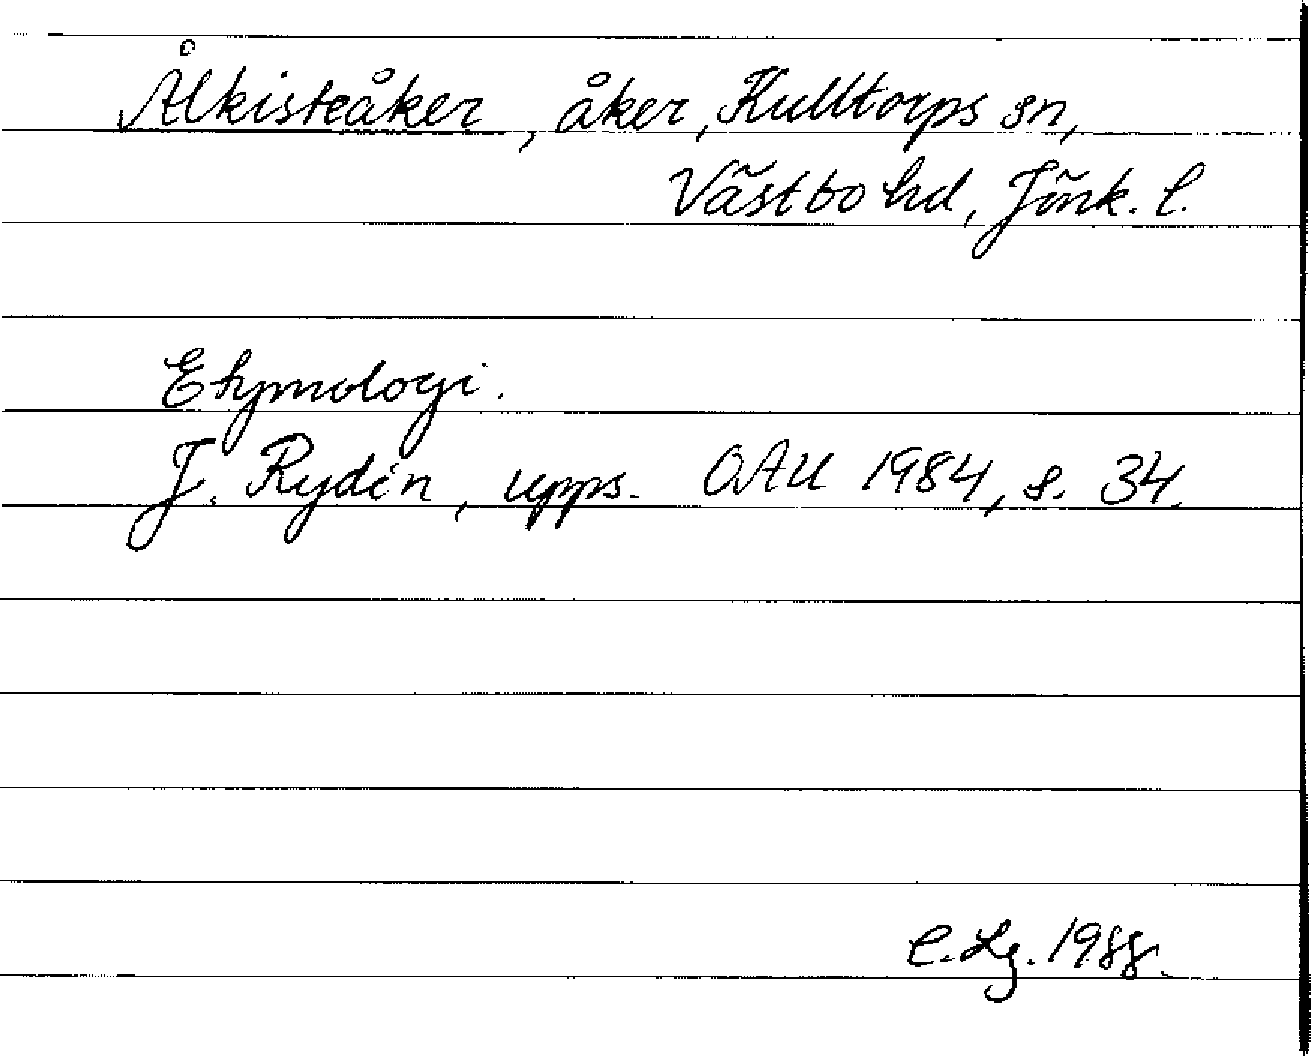 Ålkisteåker, åker, Kulltorps sn,
Västbo hd, Jönk. l.
Etymologi.
J. Rydén, upps. OAU 1984, s. 34.
C. Lg. 1988.